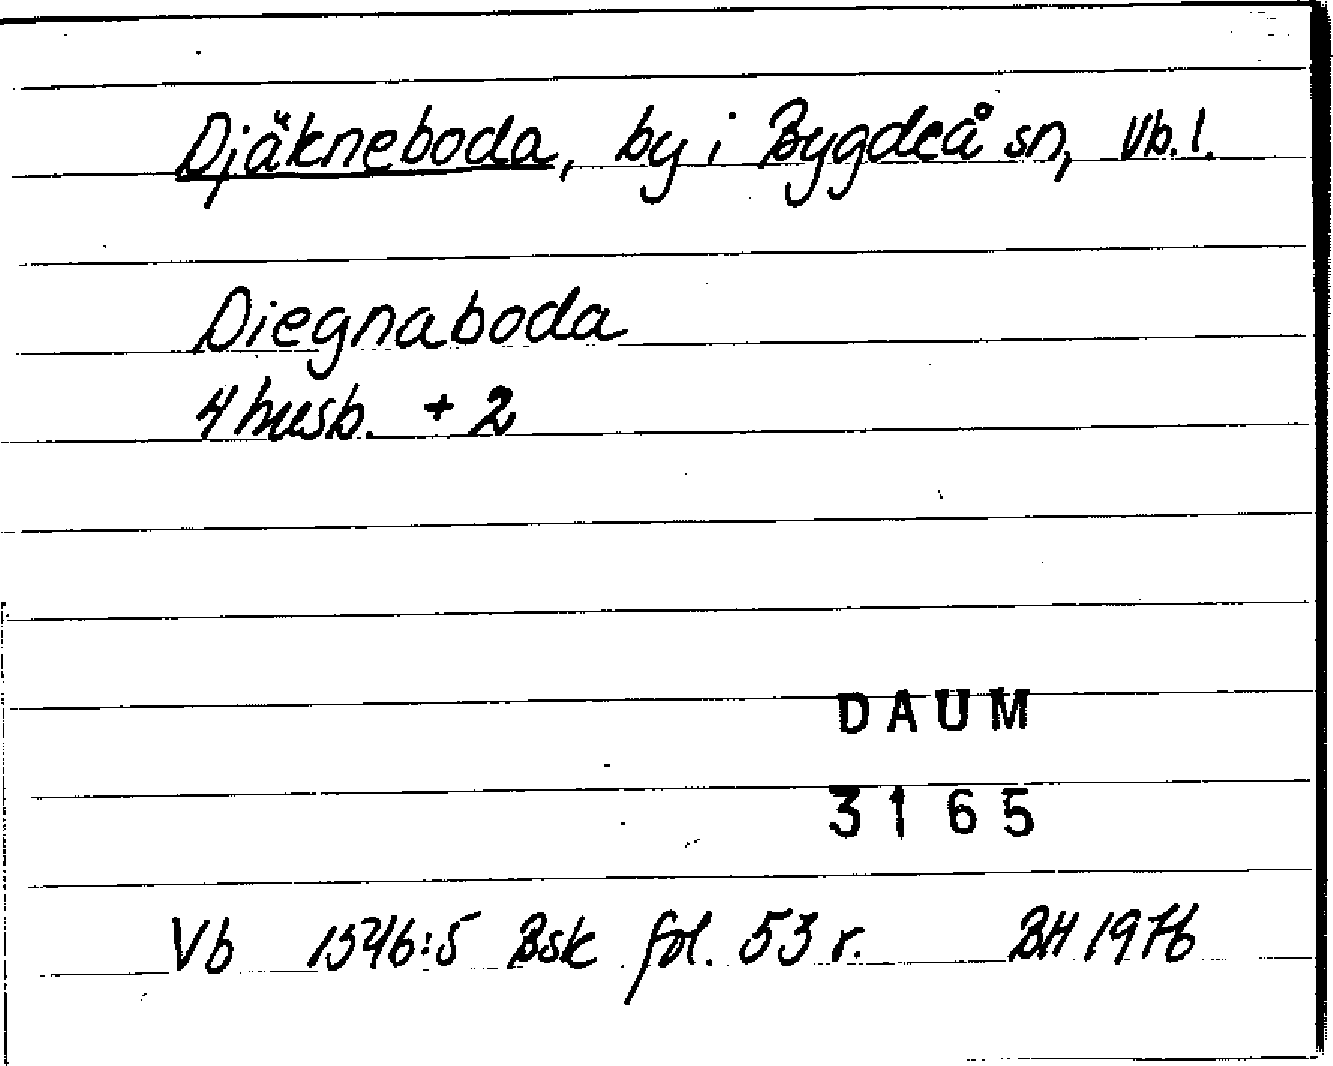 Djäkneboda, by i Bygdeå sn, Vb. l.
Diegnaboda
4 husb. + 2
DAUM
3165
Vb 1546:5 Bsk fol. 53 r. BH 1976